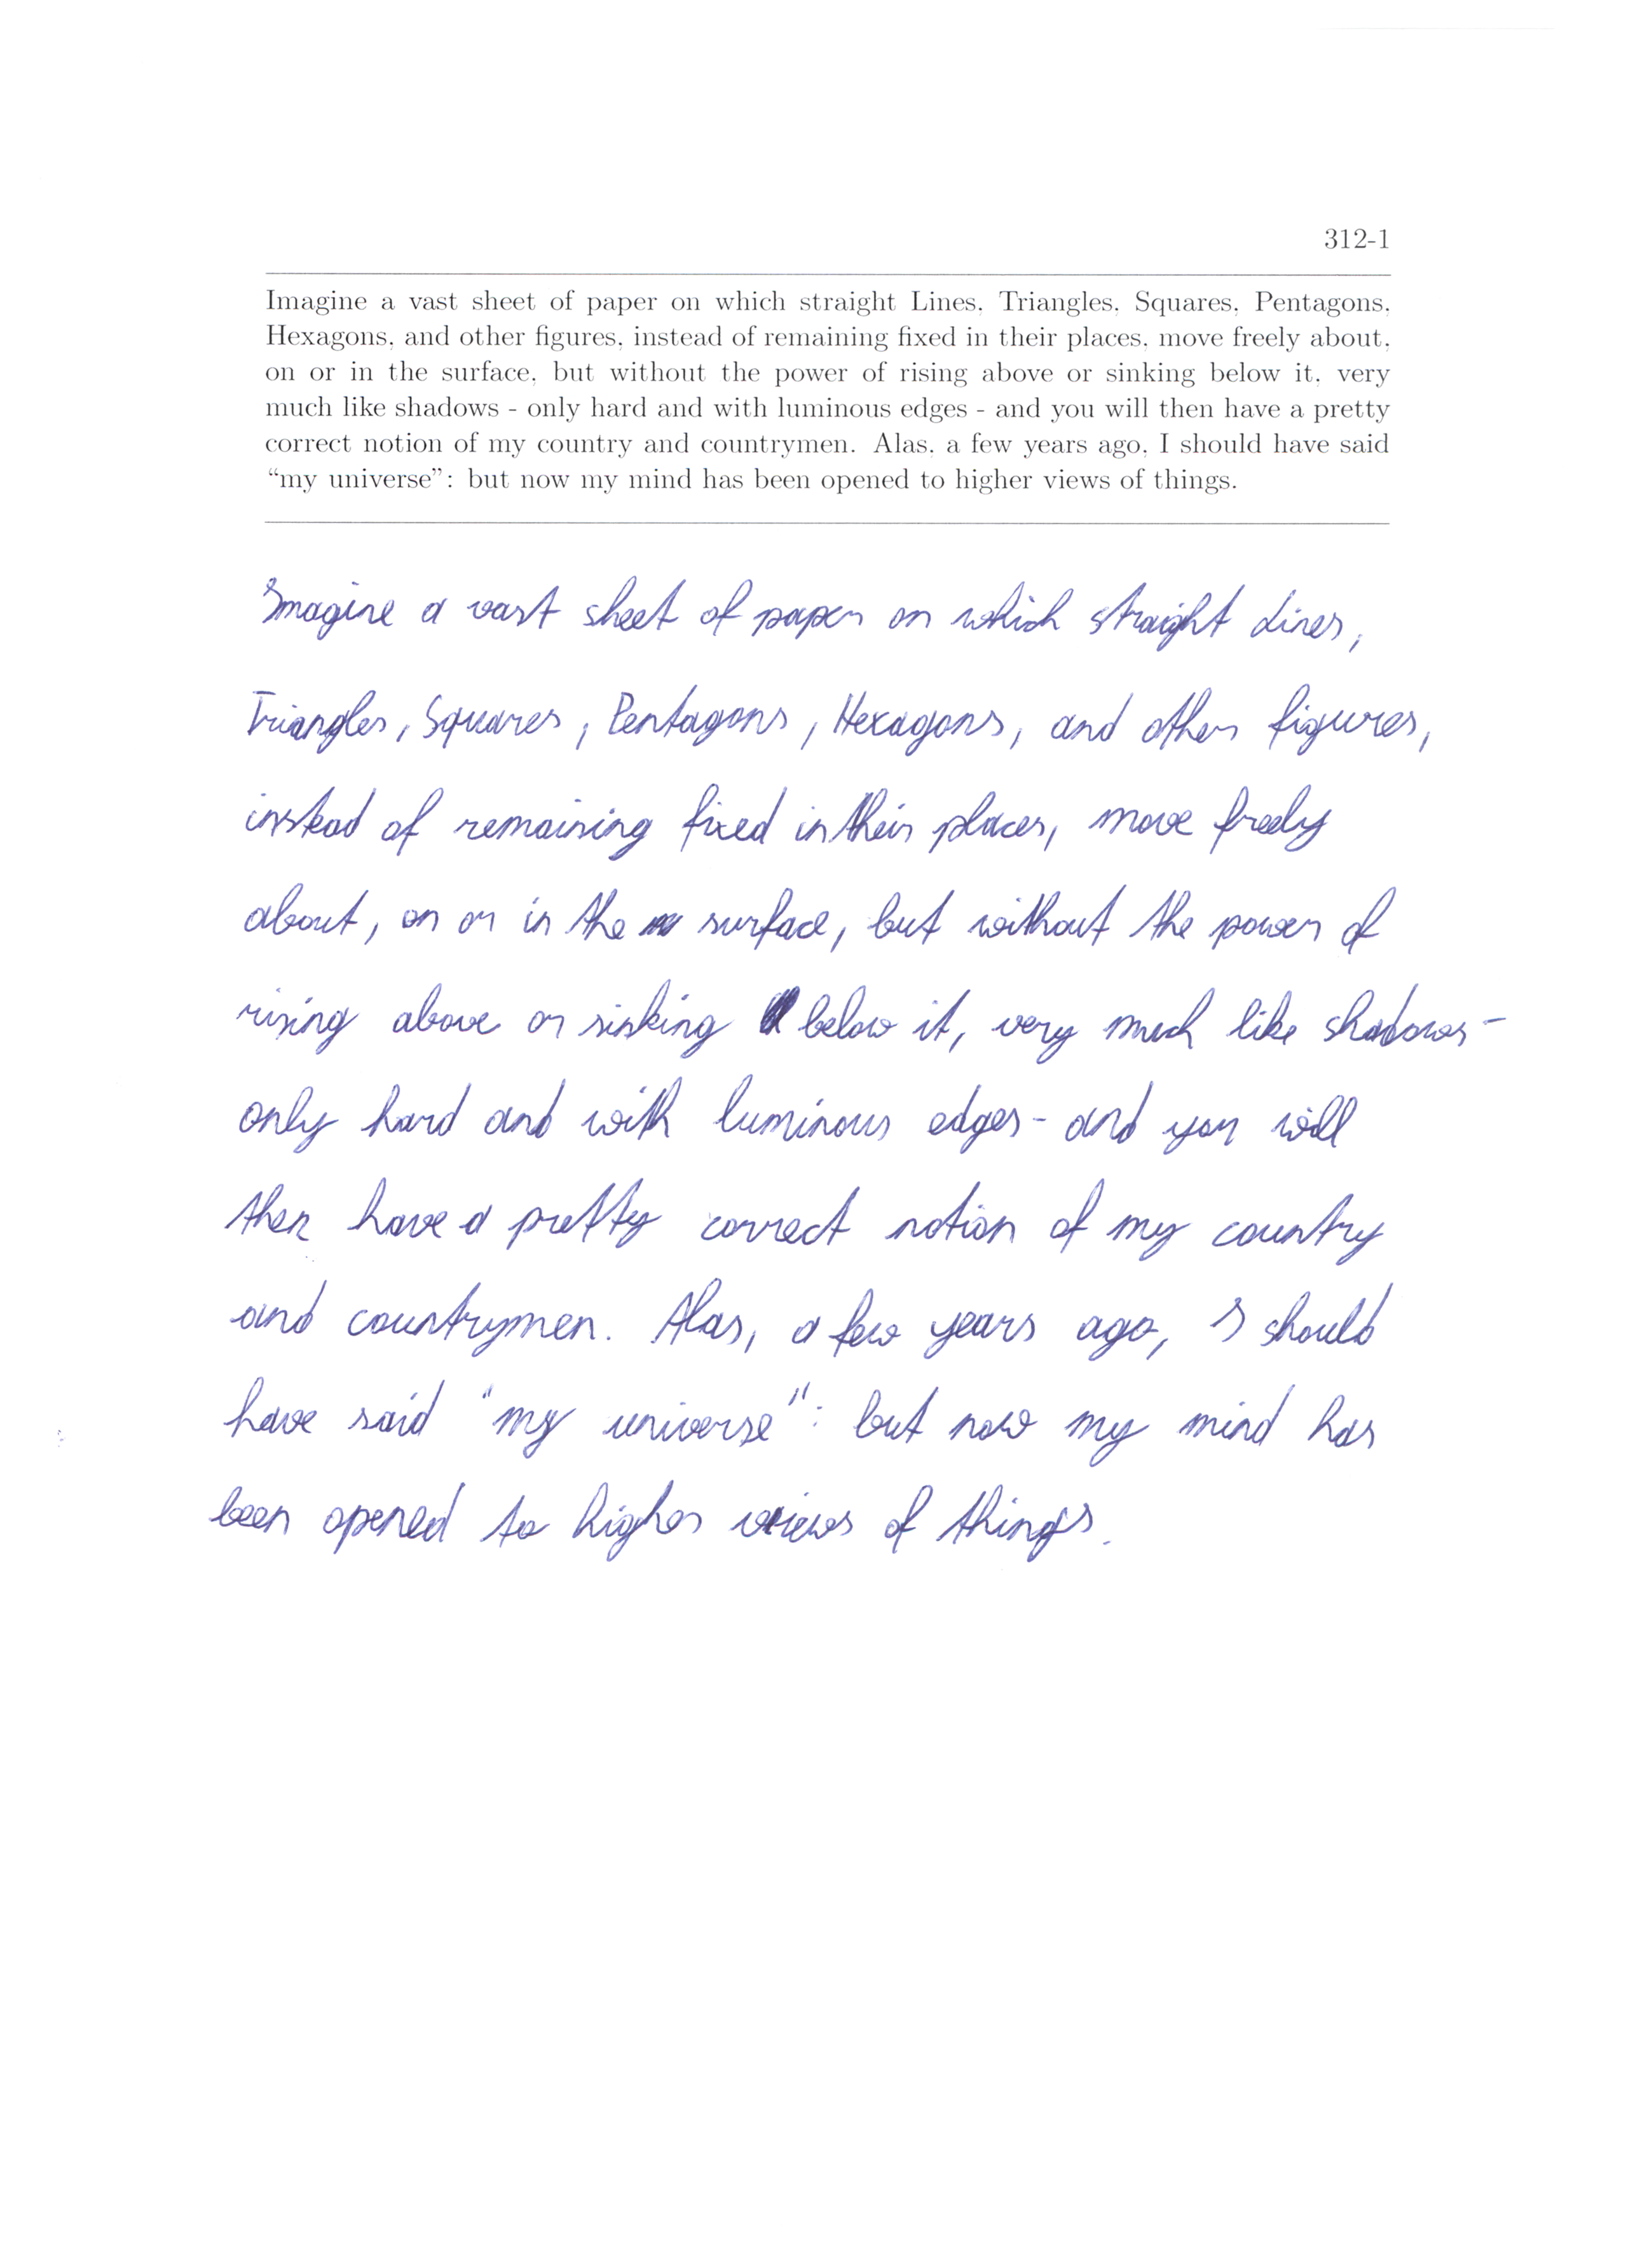 312-1
Imagine a vast sheet of paper on which straight Lines, Triangles, Squares, Pentagons,
Hexagons, and other figures, instead of remaining fixed in their places, move freely about,
on or in the surface, but without the power of rising above or sinking below it, very
much like shadows - only hard and with luminous edges - and you will then have a pretty
correct notion of my country and countrymen. Alas, a few years ago, I should have said
“my universe”: but now my mind has been opened to higher views of things.
Imagine a vast sheet of paper on which straight Lines,
Triangles, Squares, Pentagons, Hexagons, and other figures,
instead of remaining fixed in their places, move freely
about, on or in the surface, but without the power of
rising above or sinking below it, very much like shadows -
only hard and with luminous edges - and you will
then have a pretty correct notion of my country
and countrymen. Alas, a few years ago, I should
have said "my universe": but now my mind has
been opened to higher views of things.